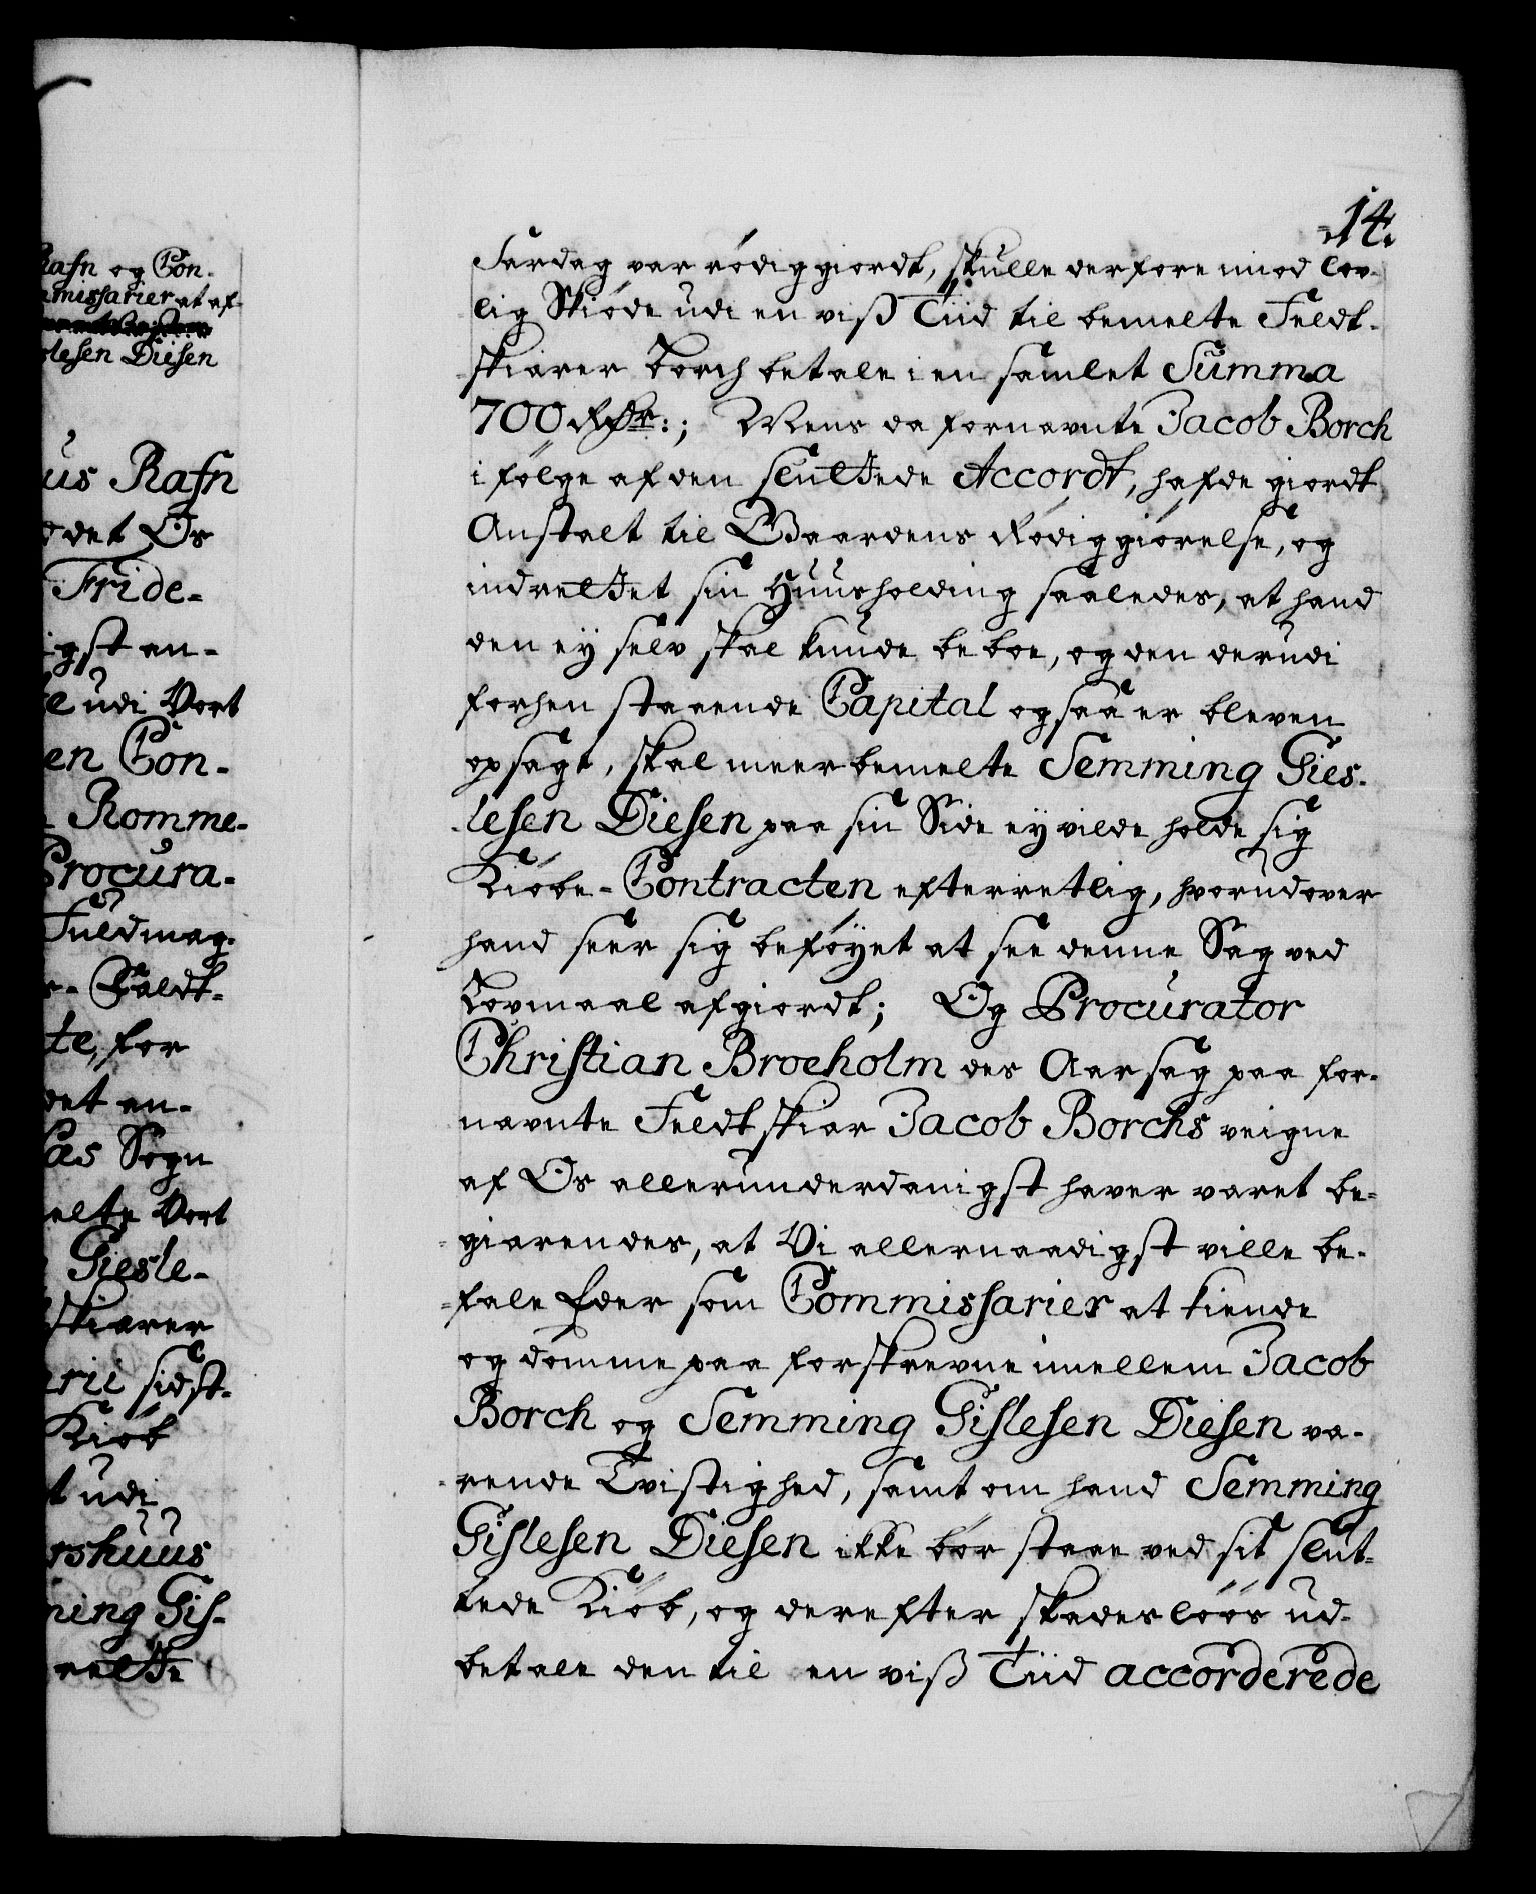 14.
Rafn og Con-
missarier at af-
slesen Diesen
us Rafn
det Os
Fride-
igst an-
e udi Vort
en Con-
Romme-
Procura-
Fuldmag-
Feldt-
te, for
det an-
as Sogn
elte Vort
Giesle-
skiærer
rii sidst-
Kiöb
t udi
rshuus
ning Gis-
Fardag var rödiggiordt, skulle derfore imod lov-
lig Skiöde udi en viß Tiid til bemelte Feldt-
skiærer Borch betale i en samlet Summa
700 Rdr:; Mens da fornævnte Jacob Borch
i fölge af den sluttede Accordt, hafde giordt
Anstalt til Gaardens Rödiggiörelse, og
indrettet sin Huusholding saaledes, at hand
den ey selv skal kunde beboe, og den derudi
forhen staaende Capital ogsaa er bleven
opsagt, skal meerbemelte Semming Gies-
lesen Diesen paa sin Side ey vilde holde sig
Kiöbe-Contracten efterretlig, hvorudover
hand seer sig beföyet at see denne Sag ved
Lovmaal afgiordt; Og Procurator
Christian Broeholm des Aarsag paa for-
nævnte Feldtskiær Jacob Borchs veigne
af Os allerunderdanigst haver været be-
giærendes, at Vi allernaadigst ville be-
fale Eder som Commissarier at kiende
og dömme paa forskrevne imellem Jacob
Borch og Semming Gislesen Diesen væ-
rende Tvistighed, samt om hand Semming
Gislesen Diesen ikke bör staae ved sit slut-
tede Kiöb, og derefter skadeslöös ud-
betale den til en viß Tiid accorderede